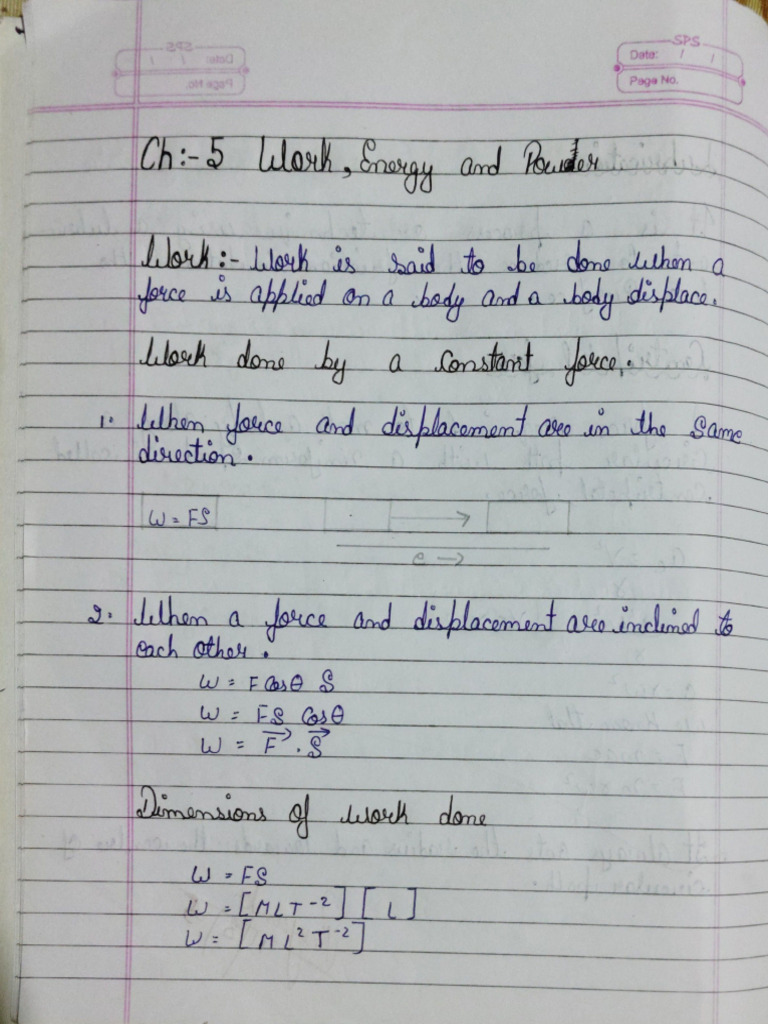 SPS
Date: / /
Page No.
Ch:- 5 Work, Energy and Powder
Work:- Work is said to be done when a
force is applied on a body and a body displace.
Work done by a constant force.
1. When force and displacement are in the same
direction.
W = FS
2. When a force and displacement are inclined to
each other.
W = F Cosθ S
W = FS Cosθ
W = F⃗ . S⃗
Dimensions of work done
W = FS
W = [MLT⁻²] [L]
W = [ML²T⁻²]